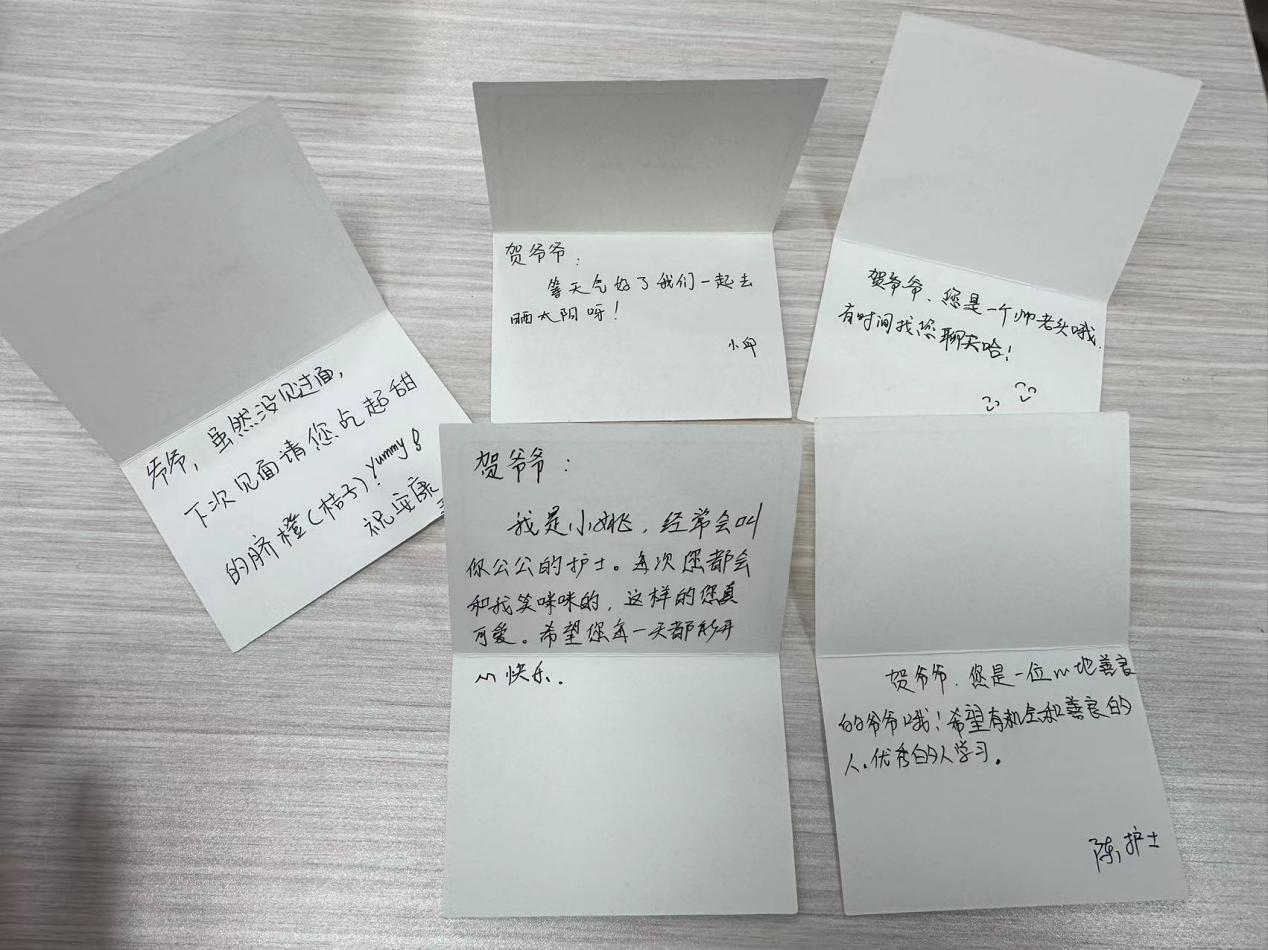 爷爷，虽然没见过面，
下次见面请您吃超甜
的脐橙(桔子)! Yummy!
祝安康
贺爷爷：
等天气好了我们一起去
晒太阳呀！
贺爷爷、您是一个帅老头哦，
有时间找您聊天哈！
贺爷爷：
我是小姚，经常会叫
你公公的护士。每次您都会
和我笑咪咪的，这样的您真
可爱。希望您每一天都能开
心快乐。
贺爷爷、您是一位心地善良
的爷爷哦！希望有机会和善良的
人.优秀的人学习。
陈护士